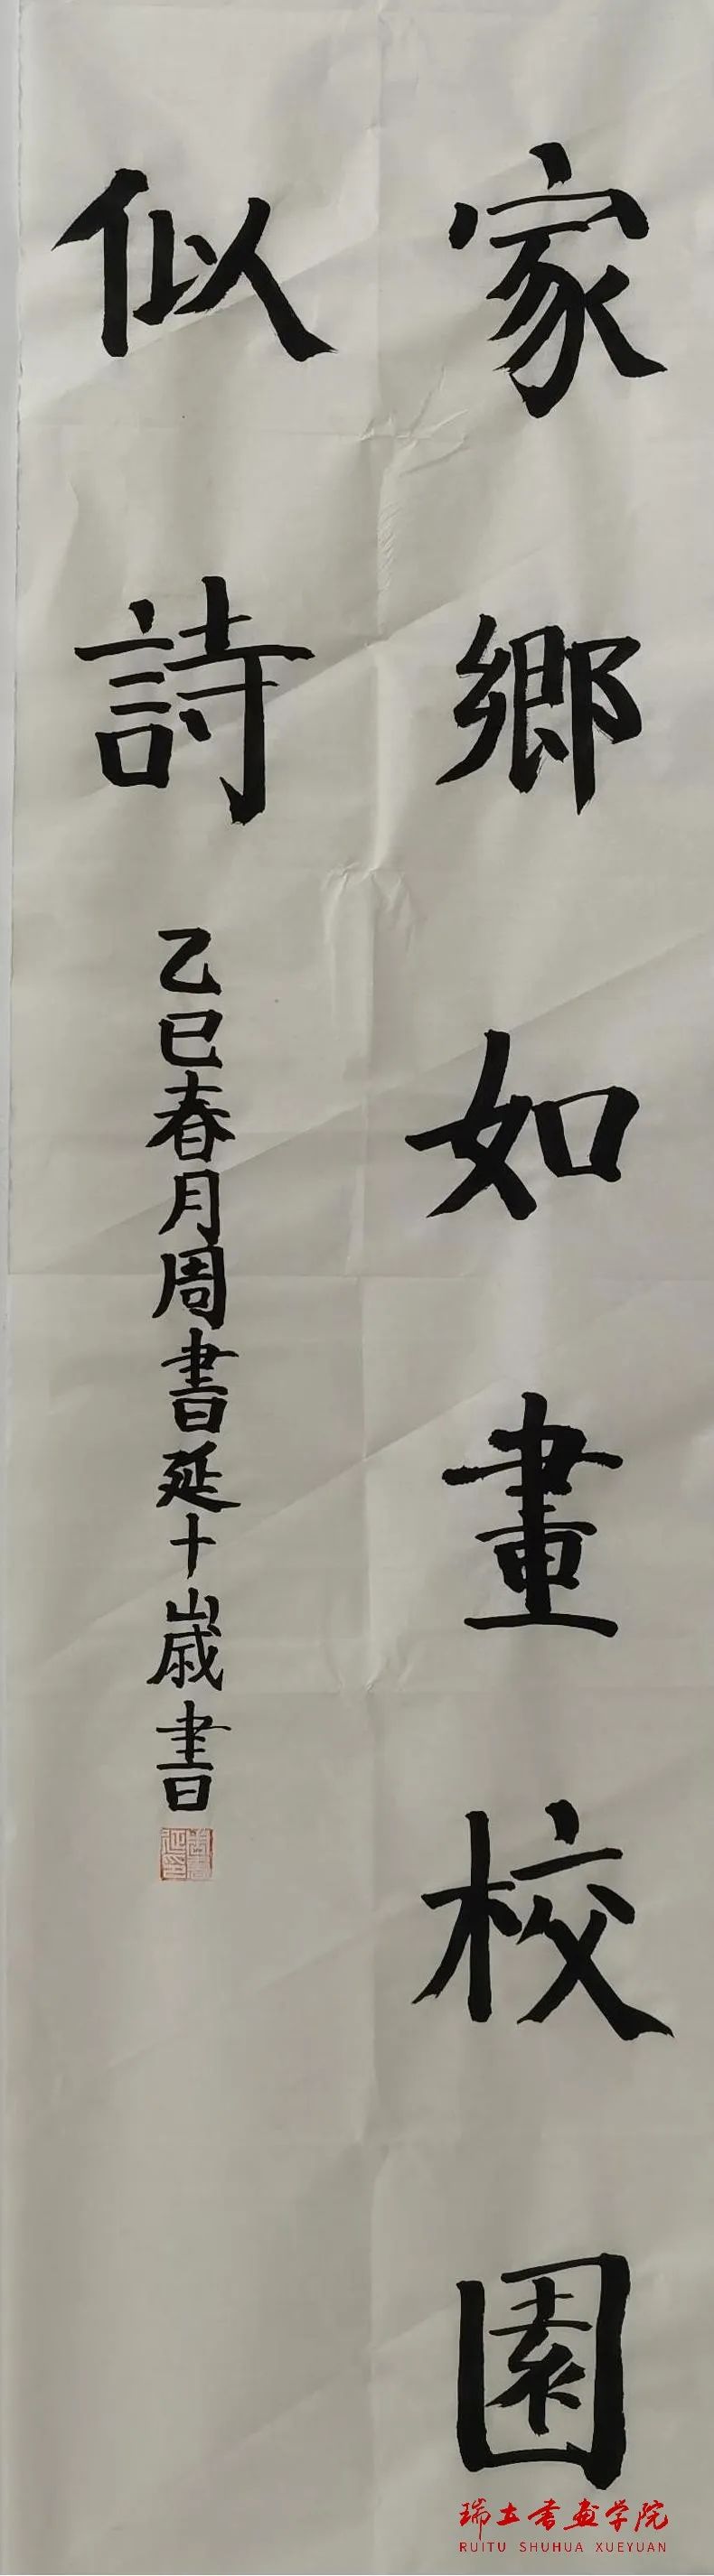 家鄉如畫校園
似詩
乙巳春月周書延十歲書
瑞土書画学院
RUITU SHUHUA XUEYUAN